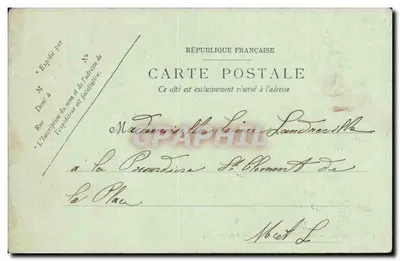 RÉPUBLIQUE FRANÇAISE
CARTE POSTALE
Ce côté est exclusivement réservé à l'adresse
* Expédié par
M
Demt à
Rue Nº
* L'inscription du nom et de l'adresse de
l'expéditeur est facultative.
Mademoiselle Landreville
à la St Clément de
la Place
M et L
CPAPHIL.COM